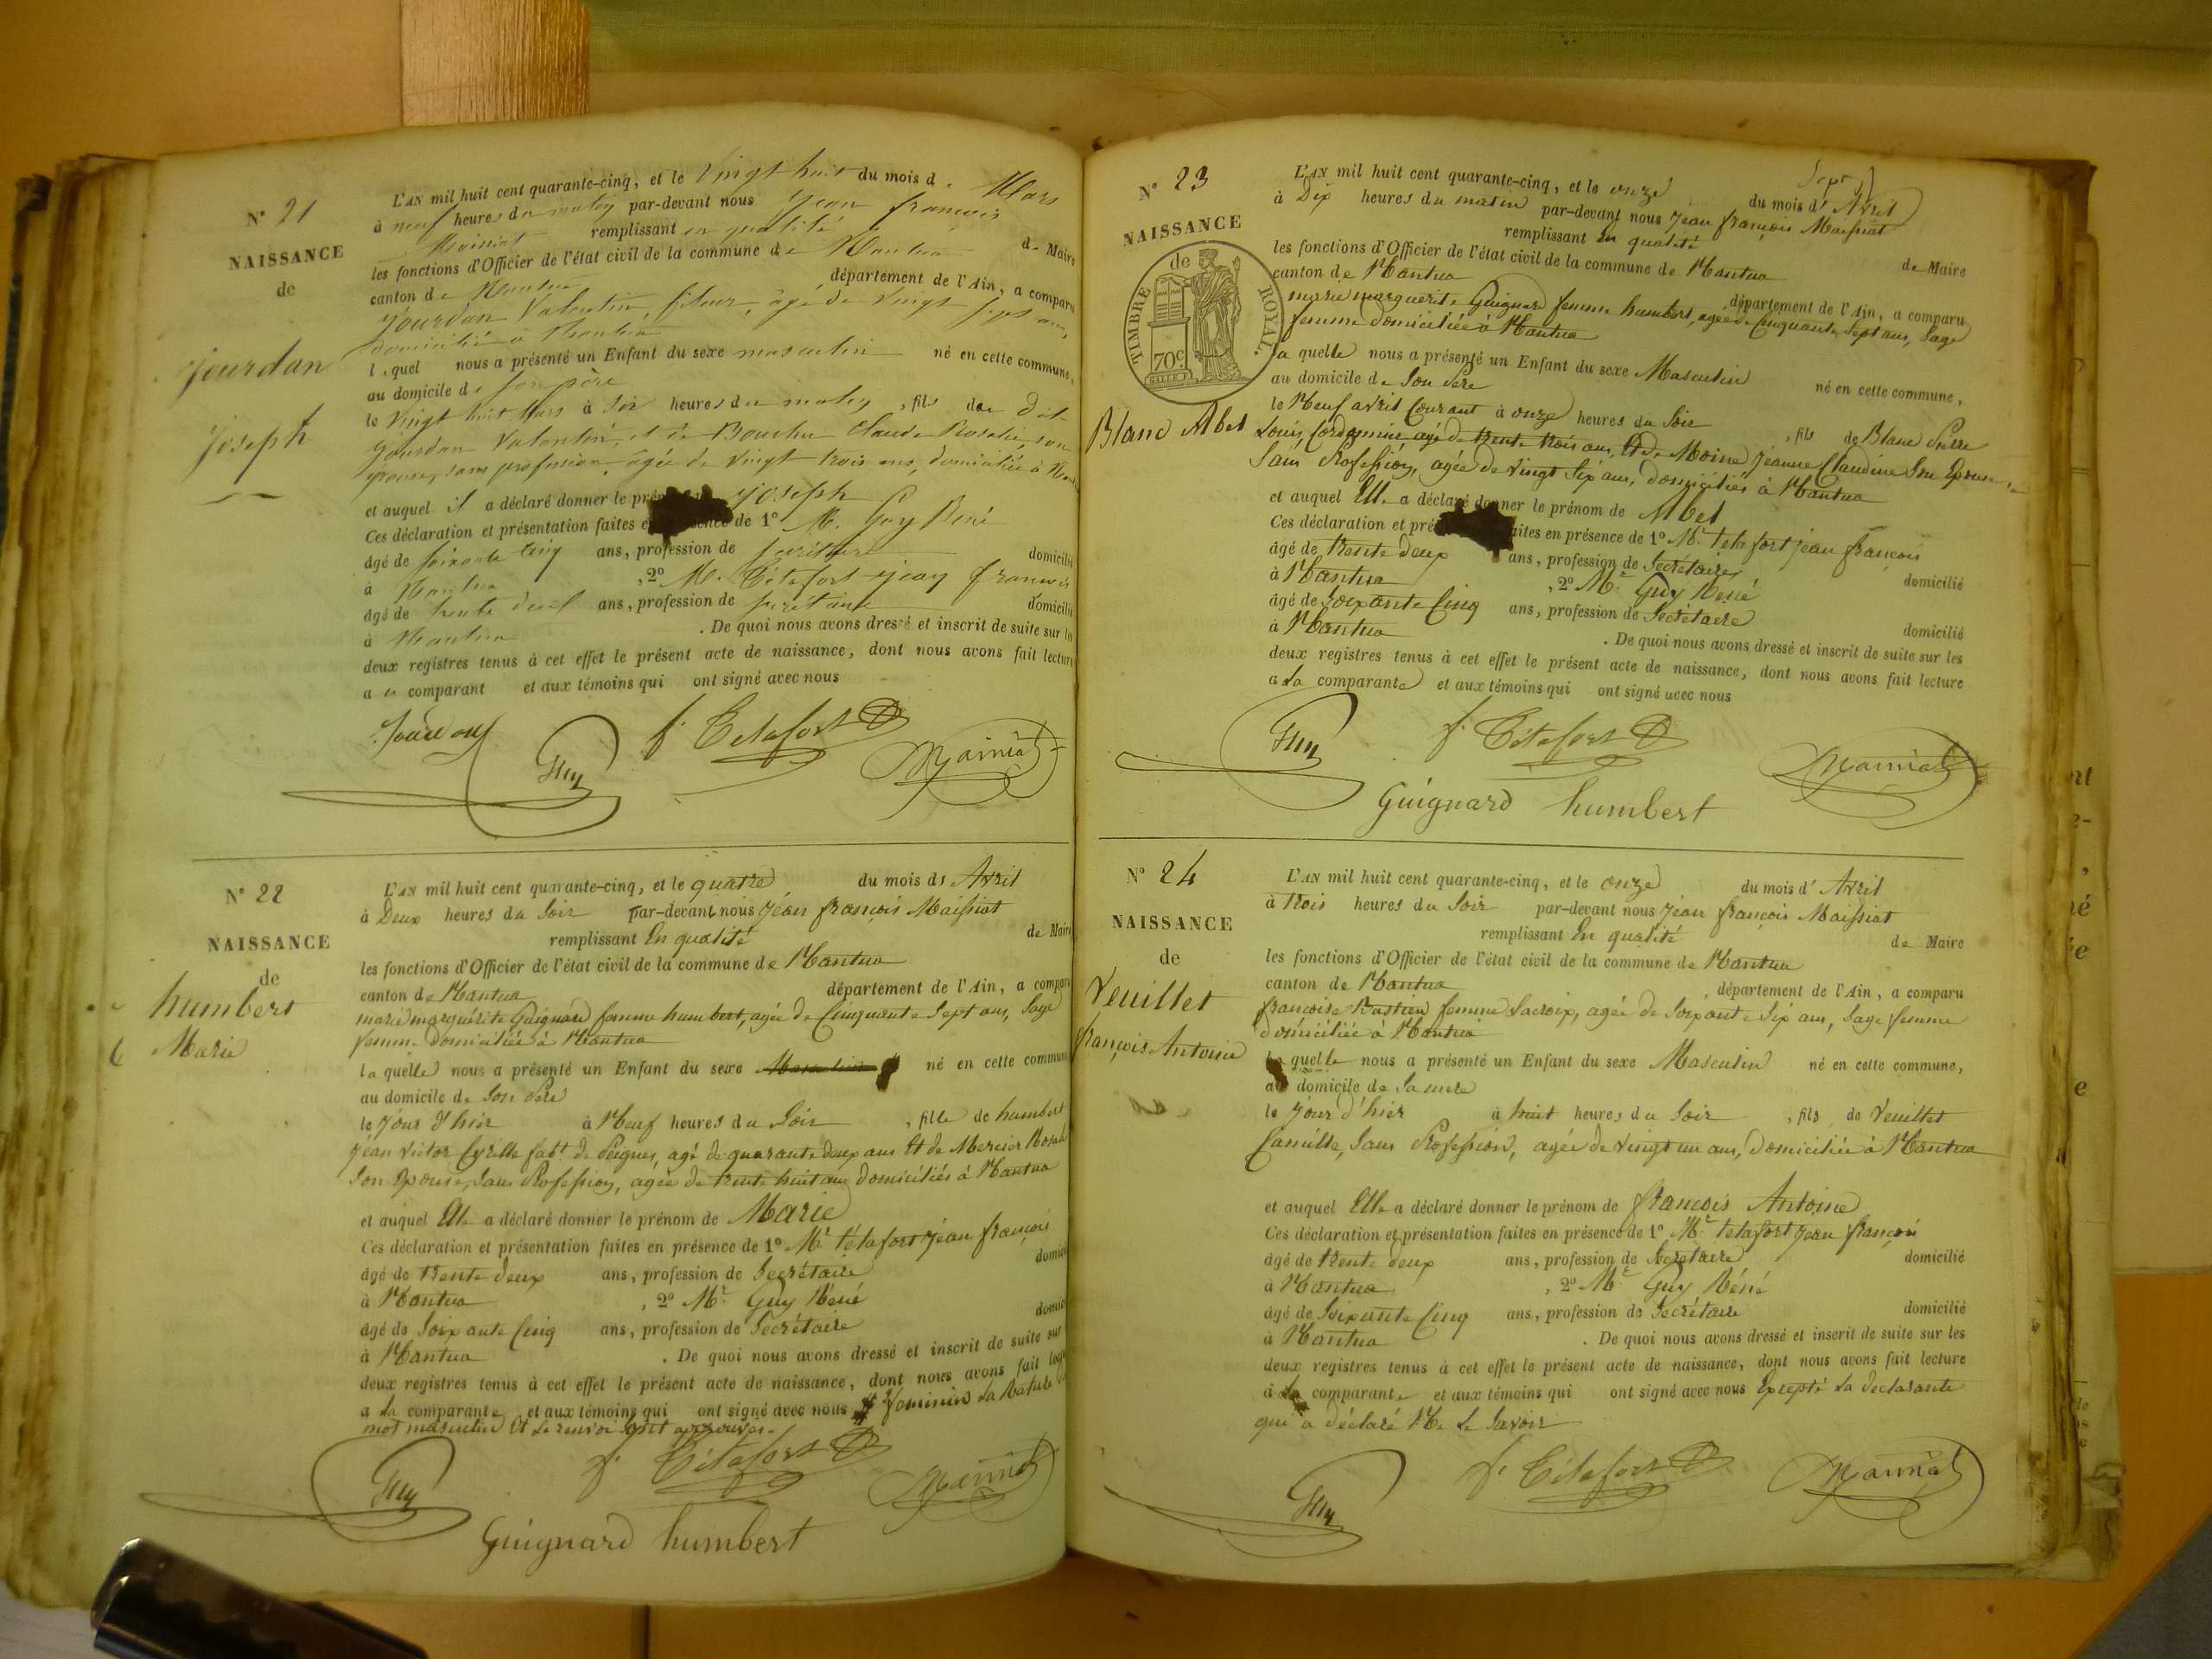 N° 21
NAISSANCE
de
Jourdan
Joseph
L'AN mil huit cent quarante-cinq, et le Vingt huit du mois de Mars
à neuf heures du matin par-devant nous Jean françois
Maissiat remplissant en qualité de Maire
les fonctions d'Officier de l'état civil de la commune de Nantua
canton de Nantua département de l'Ain, a comparu
Jourdan Valentin, âgé de Vingt sept ans,
domicilié à Nantua
lequel nous a présenté un Enfant du sexe masculin né en cette commune,
au domicile de son père
le Vingt huit Mars à six heures du matin, fils de dit
Jourdan Valentin, et de Bouchu Claude Rosalie, son
épouse, sans profession, âgée de Vingt trois ans, domiciliée à
et auquel il a déclaré donner le Joseph
Ces déclaration et présentation faites en de 1° M. Guy René
âgé de soixante cinq ans, profession de domicilié
à Nantua, 2° M. Tétafort Jean françois
âgé de trente deux ans, profession de secrétaire domicilié
à Nantua. De quoi nous avons dressé et inscrit de suite sur les
deux registres tenus à cet effet le présent acte de naissance, dont nous avons fait lecture
au comparant et aux témoins qui ont signé avec nous
Jourdan
Guy
f. Tétafort
Maissiat
N° 22
NAISSANCE
de
humbert
Marie
L'AN mil huit cent quarante-cinq, et le quatre du mois d' Avril
à Deux heures du Soir par-devant nous Jean françois Maissiat
remplissant En qualité de Maire
les fonctions d'Officier de l'état civil de la commune de Nantua
canton de Nantua département de l'Ain, a comparu
marie marguérite Guignard femme humbert, agée de Cinquante Sept ans, Sage
femme Domiciliée à Nantua
laquelle nous a présenté un Enfant du sexe Masculin né en cette commune
au domicile de Son Père
le Jour d'hier à Neuf heures du Soir, fille de humbert
Jean Victor Cyrille fabt de Peignes, agé de quarante deux ans Et de Mercier
Son Epouse, Sans Profession, agée de trente huit ans Domiciliés à Nantua
et auquel Elle a déclaré donner le prénom de Marie
Ces déclaration et présentation faites en présence de 1° Mr tétafort Jean françois
âgé de trente deux ans, profession de Secrétaire domicilié
à Nantua, 2° Mr Guy Réné
âgé de Soixante Cinq ans, profession de Secrétaire domicilié
à Nantua. De quoi nous avons dressé et inscrit de suite sur
deux registres tenus à cet effet le présent acte de naissance, dont nous avons fait lecture
a La comparante et aux témoins qui ont signé avec nous # féminin La Rature
mot masculin Et Le renvoi Sont approuvés.
Guy
f. Tétafort
Maissiat
Guignard humbert
N° 23
NAISSANCE
de
TIMBRE ROYAL.
70c
Blanc Abel
L'AN mil huit cent quarante-cinq, et le onze du mois d' Avril
à Dix heures du matin par-devant nous Jean françois Maissiat
remplissant En qualité de Maire
les fonctions d'Officier de l'état civil de la commune de Nantua
canton de Nantua département de l'Ain, a comparu
marie marguerite Guignard femme humbert, agée de Cinquante Sept ans, Sage
femme domiciliée à Nantua
la quelle nous a présenté un Enfant du sexe Masculin né en cette commune,
au domicile de Son Père
le Neuf avril Courant à onze heures du Soir, fils de Blanc Pierre
Louis, Cordonnier, agé de trente trois ans, Et de Moine Jeanne Claudine Son Epouse
Sans Profession, agée de vingt Six ans, domiciliés à Nantua
et auquel Elle a déclaré donner le prénom de Abel
Ces déclaration et présentation faites en présence de 1° Mr tétafort Jean françois
âgé de trente deux ans, profession de Secrétaire domicilié
à Nantua, 2° Mr Guy Réné
âgé de Soixante Cinq ans, profession de Secrétaire domicilié
à Nantua. De quoi nous avons dressé et inscrit de suite sur les
deux registres tenus à cet effet le présent acte de naissance, dont nous avons fait lecture
a La comparante et aux témoins qui ont signé avec nous
Guy
f. Tétafort
Maissiat
Guignard humbert
N° 24
NAISSANCE
de
Veuillet
françois Antoine
L'AN mil huit cent quarante-cinq, et le onze du mois d' Avril
à trois heures du Soir par-devant nous Jean françois Maissiat
remplissant En qualité de Maire
les fonctions d'Officier de l'état civil de la commune de Nantua
canton de Nantua département de l'Ain, a comparu
françoise Bastien femme Lacroix, agée de Soixante Six ans, Sage femme
Domiciliée à Nantua
la quelle nous a présenté un Enfant du sexe Masculin né en cette commune,
au domicile de Sa mere
le Jour d'hier à huit heures du Soir, fils de Veuillet
Camille, Sans Profession, agée de vingt un ans, Domiciliée à Nantua
et auquel Elle a déclaré donner le prénom de françois Antoine
Ces déclaration et présentation faites en présence de 1° Mr tétafort Jean françois
âgé de trente deux ans, profession de Secretaire domicilié
à Nantua, 2° Mr Guy Réné
âgé de Soixante Cinq ans, profession de Secrétaire domicilié
à Nantua. De quoi nous avons dressé et inscrit de suite sur les
deux registres tenus à cet effet le présent acte de naissance, dont nous avons fait lecture
à La comparante et aux témoins qui ont signé avec nous Excepté La declarante
qui a déclaré Ne Le Savoir
Guy
f. Tétafort
Maissiat